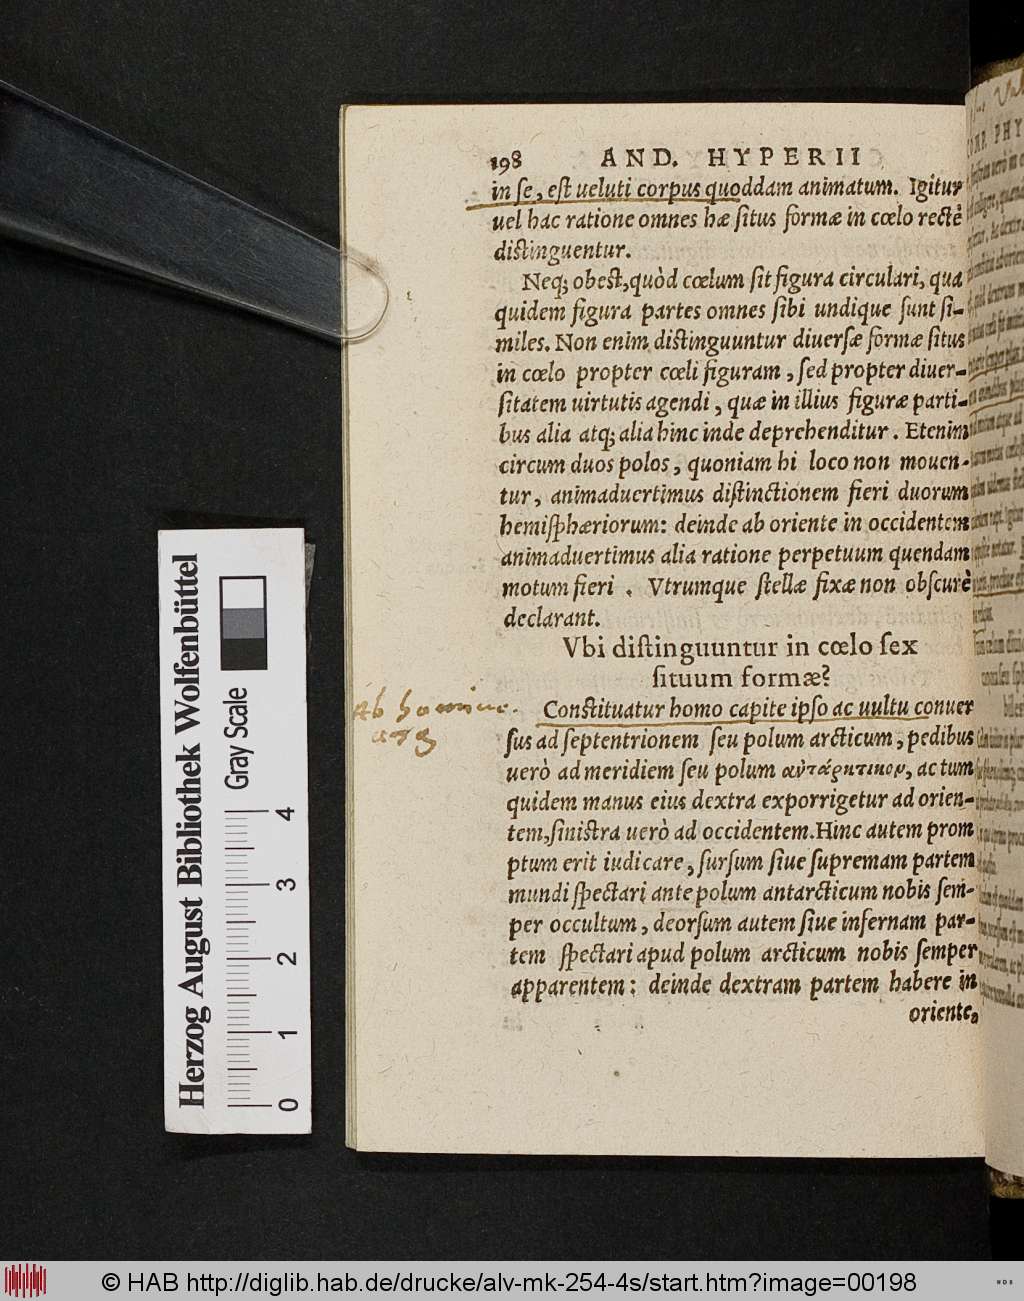 198 AND. HYPERII
in se, est ueluti corpus quoddam animatum. Igitur
uel hac ratione omnes hæ situs formæ in cœlo rectè
distinguentur.
Neq; obest, quòd cœlum sit figura circulari, qua
quidem figura partes omnes sibi undique sunt si-
miles. Non enim distinguuntur diuersæ formæ situs
in cœlo propter cœli figuram, sed propter diuer-
sitatem uirtutis agendi, quæ in illius figuræ parti-
bus alia atq; alia hinc inde deprehenditur. Etenim
circum duos polos, quoniam hi loco non mouen-
tur, animaduertimus distinctionem fieri duorum
hemisphæriorum: deinde ab oriente in occidentem
animaduertimus alia ratione perpetuum quendam
motum fieri. Vtrumque stellæ fixæ non obscurè
declarant.
Vbi distinguuntur in cœlo sex
situum formæ?
Ab homine.
Constituatur homo capite ipso ac uultu conuer
sus ad septentrionem seu polum arcticum, pedibus
uerò ad meridiem seu polum αὐτάρκτικον, ac tum
quidem manus eius dextra exporrigetur ad orien-
tem, sinistra uerò ad occidentem. Hinc autem prom
ptum erit iudicare, sursum siue supremam partem
mundi spectari ante polum antarcticum nobis sem-
per occultum, deorsum autem siue infernam par-
tem spectari apud polum arcticum nobis semper
apparentem: deinde dextram partem habere in
oriente,
Herzog August Bibliothek Wolfenbüttel
Gray Scale
0 1 2 3 4
© HAB http://diglib.hab.de/drucke/alv-mk-254-4s/start.htm?image=00198